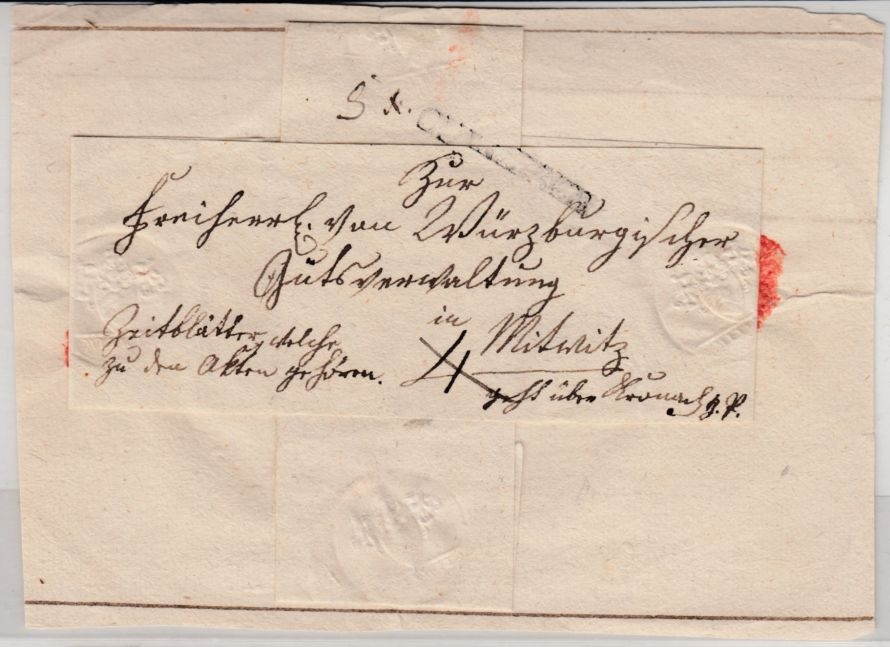 Zur
Freiherrl. von Würzburgischer
Gutsverwaltung
in
Mitwitz
geht über Kronach
Zeitblätter, welche
zu den Akten gehören.
4